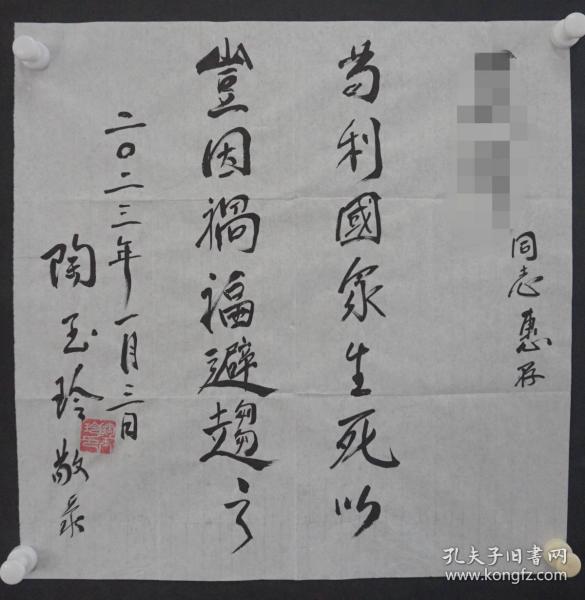 同志惠存
苟利國家生死以
豈因禍福避趨之
二〇二三年一月三日
陶玉玲敬录
孔夫子旧书网
www.kongfz.com